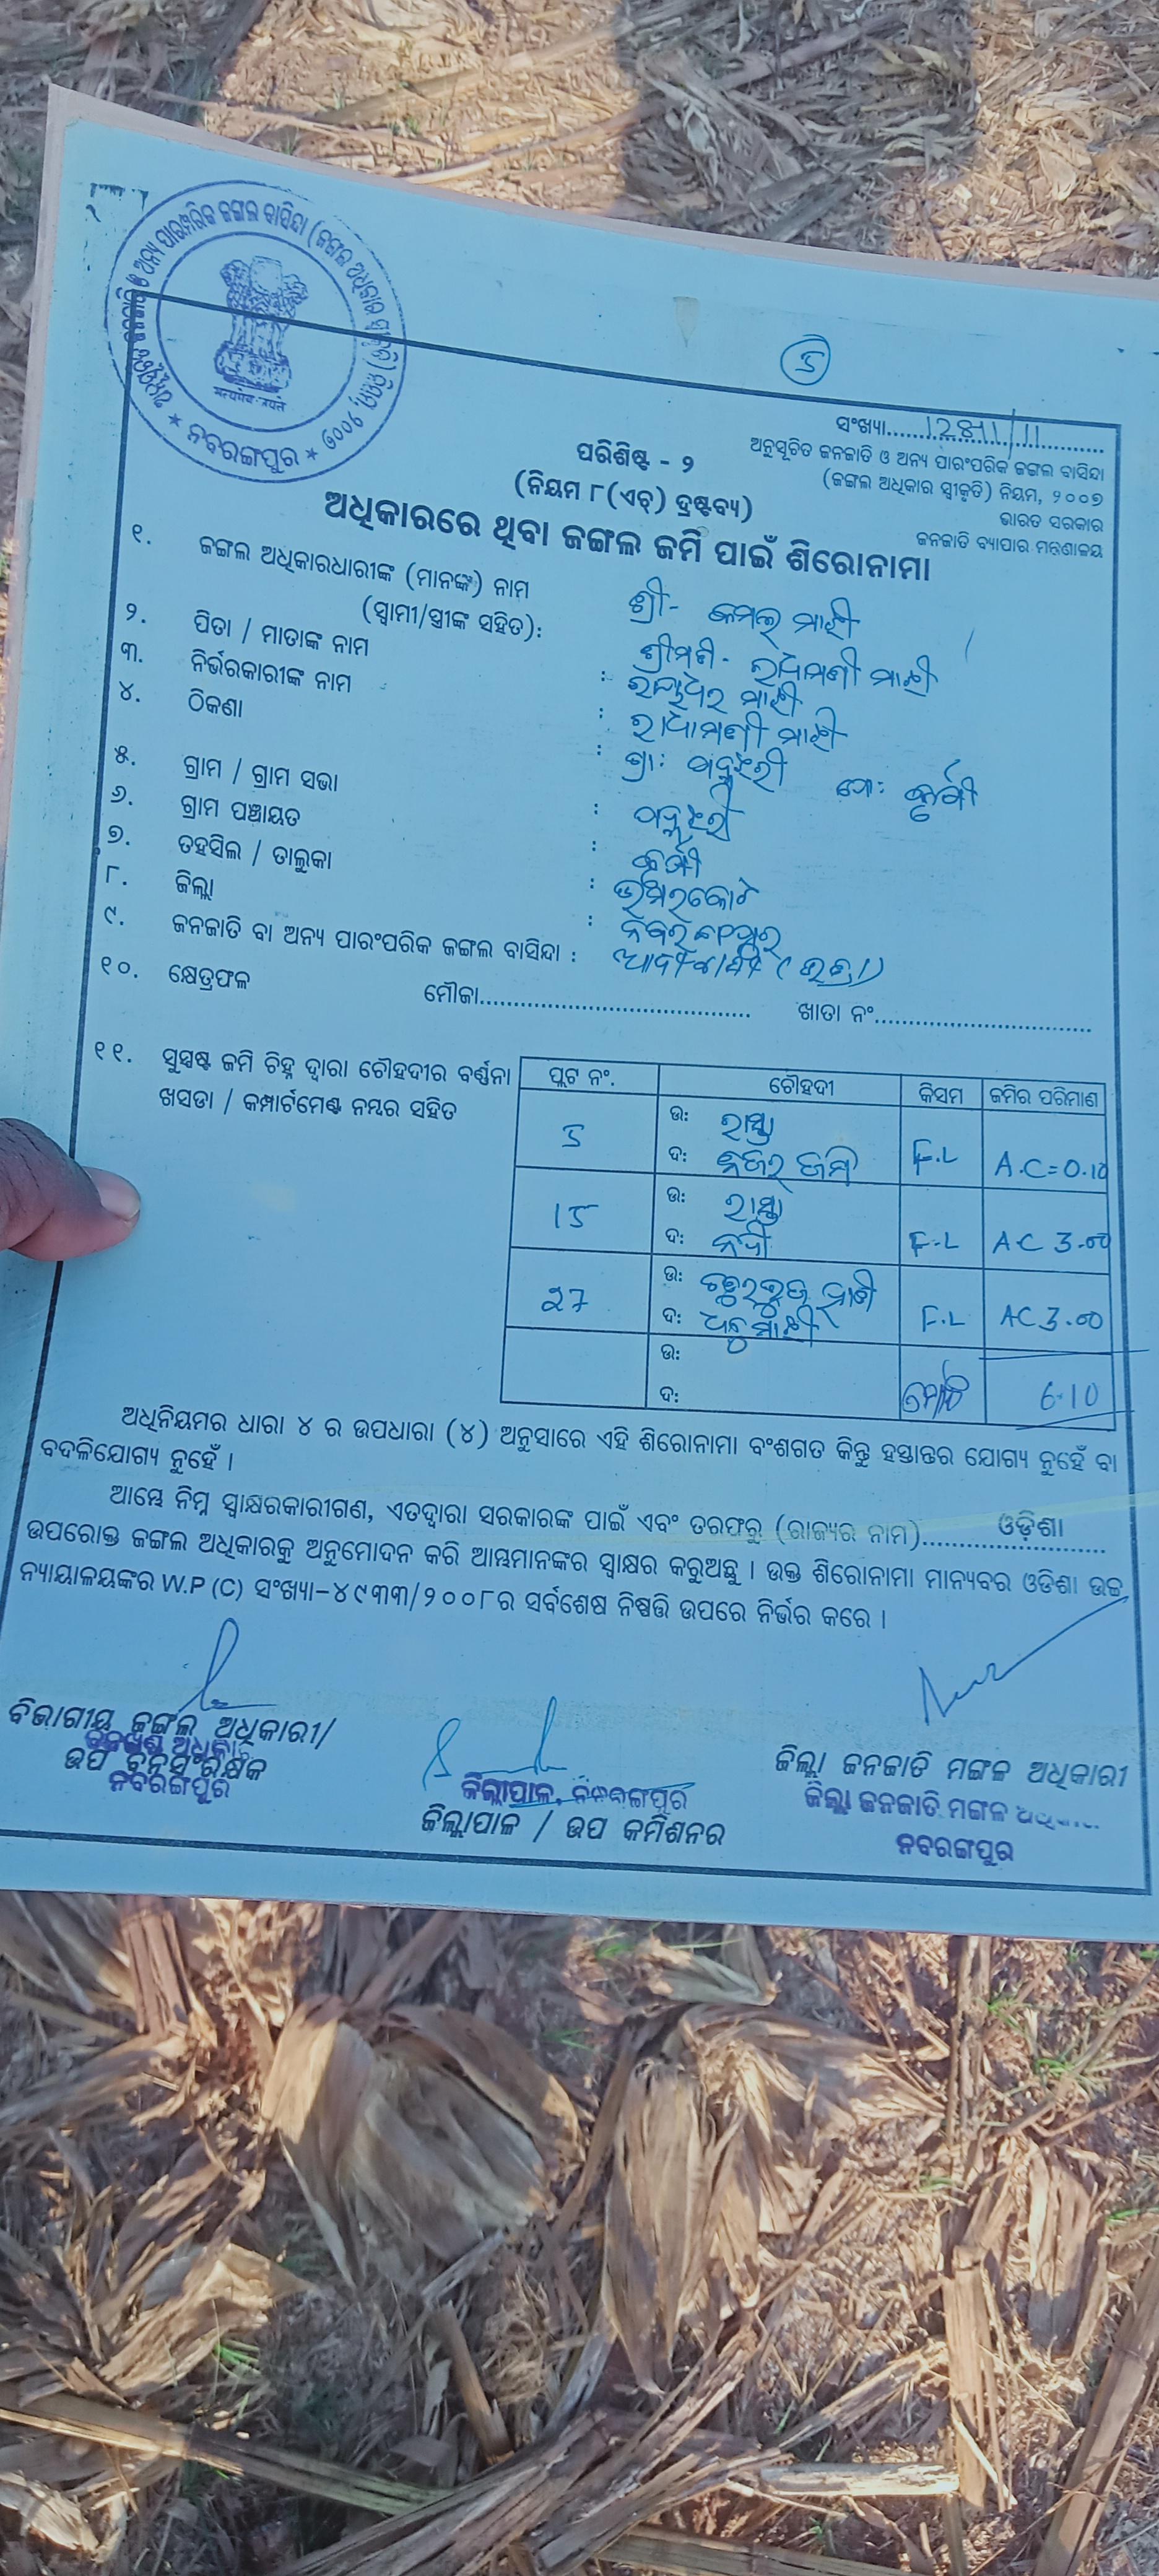 ଅନୁସୂଚିତ ଜନଜାତି ଓ ଅନ୍ୟ ପାରମ୍ପରିକ ଜଙ୍ଗଲ ବାସିନ୍ଦା (ଜଙ୍ଗଲ ଅଧିକାର ସ୍ୱୀକୃତି) ନିୟମ, ୨୦୦୭
★ ନବରଙ୍ଗପୁର ★
5
ସଂଖ୍ୟା
ଅନୁସୂଚିତ ଜନଜାତି ଓ ଅନ୍ୟ ପାରଂପରିକ ଜଙ୍ଗଲ ବାସିନ୍ଦା
(ଜଙ୍ଗଲ ଅଧିକାର ସ୍ୱୀକୃତି) ନିୟମ, ୨୦୦୭
ଭାରତ ସରକାର
ଜନଜାତି ବ୍ୟାପାର ମନ୍ତ୍ରଣାଳୟ
ପରିଶିଷ୍ଟ - ୨
(ନିୟମ ୮(ଏଚ୍) ଦ୍ରଷ୍ଟବ୍ୟ)
ଅଧିକାରରେ ଥିବା ଜଙ୍ଗଲ ଜମି ପାଇଁ ଶିରୋନାମା
୧. ଜଙ୍ଗଲ ଅଧିକାରଧାରୀଙ୍କ (ମାନଙ୍କ) ନାମ ଶ୍ରୀ- କମଲୁ ମାଝୀ
(ସ୍ୱାମୀ/ସ୍ତ୍ରୀଙ୍କ ସହିତ): ଶ୍ରୀମତି- ରାଧାମଣୀ ମାଝୀ
୨. ପିତା / ମାତାଙ୍କ ନାମ : ମାଝୀ
୩. ନିର୍ଭରକାରୀଙ୍କ ନାମ : ରାଧାମଣୀ ମାଝୀ
୪. ଠିକଣା : ଗ୍ରା: ପୋ:
୫. ଗ୍ରାମ / ଗ୍ରାମ ସଭା :
୬. ଗ୍ରାମ ପଞ୍ଚାୟତ :
୭. ତହସିଲ / ତାଲୁକା : ଉମରକୋଟ
୮. ଜିଲ୍ଲା : ନବରଙ୍ଗପୁର
୯. ଜନଜାତି ବା ଅନ୍ୟ ପାରଂପରିକ ଜଙ୍ଗଲ ବାସିନ୍ଦା : ଆଦିବାସୀ
୧୦. କ୍ଷେତ୍ରଫଳ ମୌଜା ଖାତା ନଂ
୧୧. ସୁସ୍ପଷ୍ଟ ଜମି ଚିହ୍ନ ଦ୍ୱାରା ଚୌହଦୀର ବର୍ଣ୍ଣନା
ଖସଡା / କମ୍ପାର୍ଟମେଣ୍ଟ ନମ୍ବର ସହିତ
ପ୍ଲଟ ନଂ. ଚୌହଦୀ କିସମ ଜମିର ପରିମାଣ
5 ଉ: ରାସ୍ତା F.L A.C=0.10
ଦ: ନିଜର ଜମି
15 ଉ: ରାସ୍ତା F.L AC 3.00
ଦ: ନଦୀ
27 ଉ: F.L AC 3.00
ଦ: ମାଝୀ
ଉ: ମୋଟ 6.10
ଦ:
ଅଧିନିୟମର ଧାରା ୪ ର ଉପଧାରା (୪) ଅନୁସାରେ ଏହି ଶିରୋନାମା ବଂଶଗତ କିନ୍ତୁ ହସ୍ତାନ୍ତର ଯୋଗ୍ୟ ନୁହେଁ ବା
ବଦଳିଯୋଗ୍ୟ ନୁହେଁ ।
ଆମ୍ଭେ ନିମ୍ନ ସ୍ୱାକ୍ଷରକାରୀଗଣ, ଏତଦ୍ୱାରା ସରକାରଙ୍କ ପାଇଁ ଏବଂ ତରଫରୁ (ରାଜ୍ୟର ନାମ) ଓଡ଼ିଶା
ଉପରୋକ୍ତ ଜଙ୍ଗଲ ଅଧିକାରକୁ ଅନୁମୋଦନ କରି ଆମ୍ଭମାନଙ୍କର ସ୍ୱାକ୍ଷର କରୁଅଛୁ । ଉକ୍ତ ଶିରୋନାମା ମାନ୍ୟବର ଓଡିଶା ଉଚ୍ଚ
ନ୍ୟାୟାଳୟଙ୍କର W.P (C) ସଂଖ୍ୟା-୪୯୩୩/୨୦୦୮ର ସର୍ବଶେଷ ନିଷ୍ପତ୍ତି ଉପରେ ନିର୍ଭର କରେ ।
ବିଭାଗୀୟ ଜଙ୍ଗଲ ଅଧିକାରୀ/
ଉପ ବନସଂରକ୍ଷକ
ନବରଙ୍ଗପୁର
ଜିଲ୍ଲାପାଳ, ନବରଙ୍ଗପୁର
ଜିଲ୍ଲାପାଳ / ଉପ କମିଶନର
ଜିଲ୍ଲା ଜନଜାତି ମଙ୍ଗଳ ଅଧିକାରୀ
ଜିଲ୍ଲା ଜନଜାତି ମଙ୍ଗଳ
ନବରଙ୍ଗପୁର